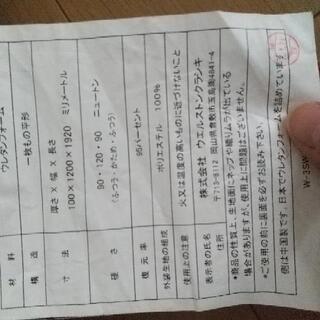 材料 ウレタンフォーム
構造 一枚もの平形
寸法 厚さ×幅×長さ
100×1200×1920 ミリメートル
硬さ 90・120・90 ニュートン
(ふつう・かため・ふつう)
復元率 95パーセント
外装生地の組成 ポリエステル 100%
使用上の注意 火又は温度の高いものに近づけないこと
表示者の氏名 株式会社 ウエルストンクラシキ
住所 〒713-8112 岡山県倉敷市玉島 4841-4
*商品の性質上、生地面にネップや織りムラが出ている
場合がありますが、使用上に問題はございません。
*ご使用の前に裏面を必ずお読み下さい。
側は中国製です。日本でウレタンフォームを詰めています。
W-35W